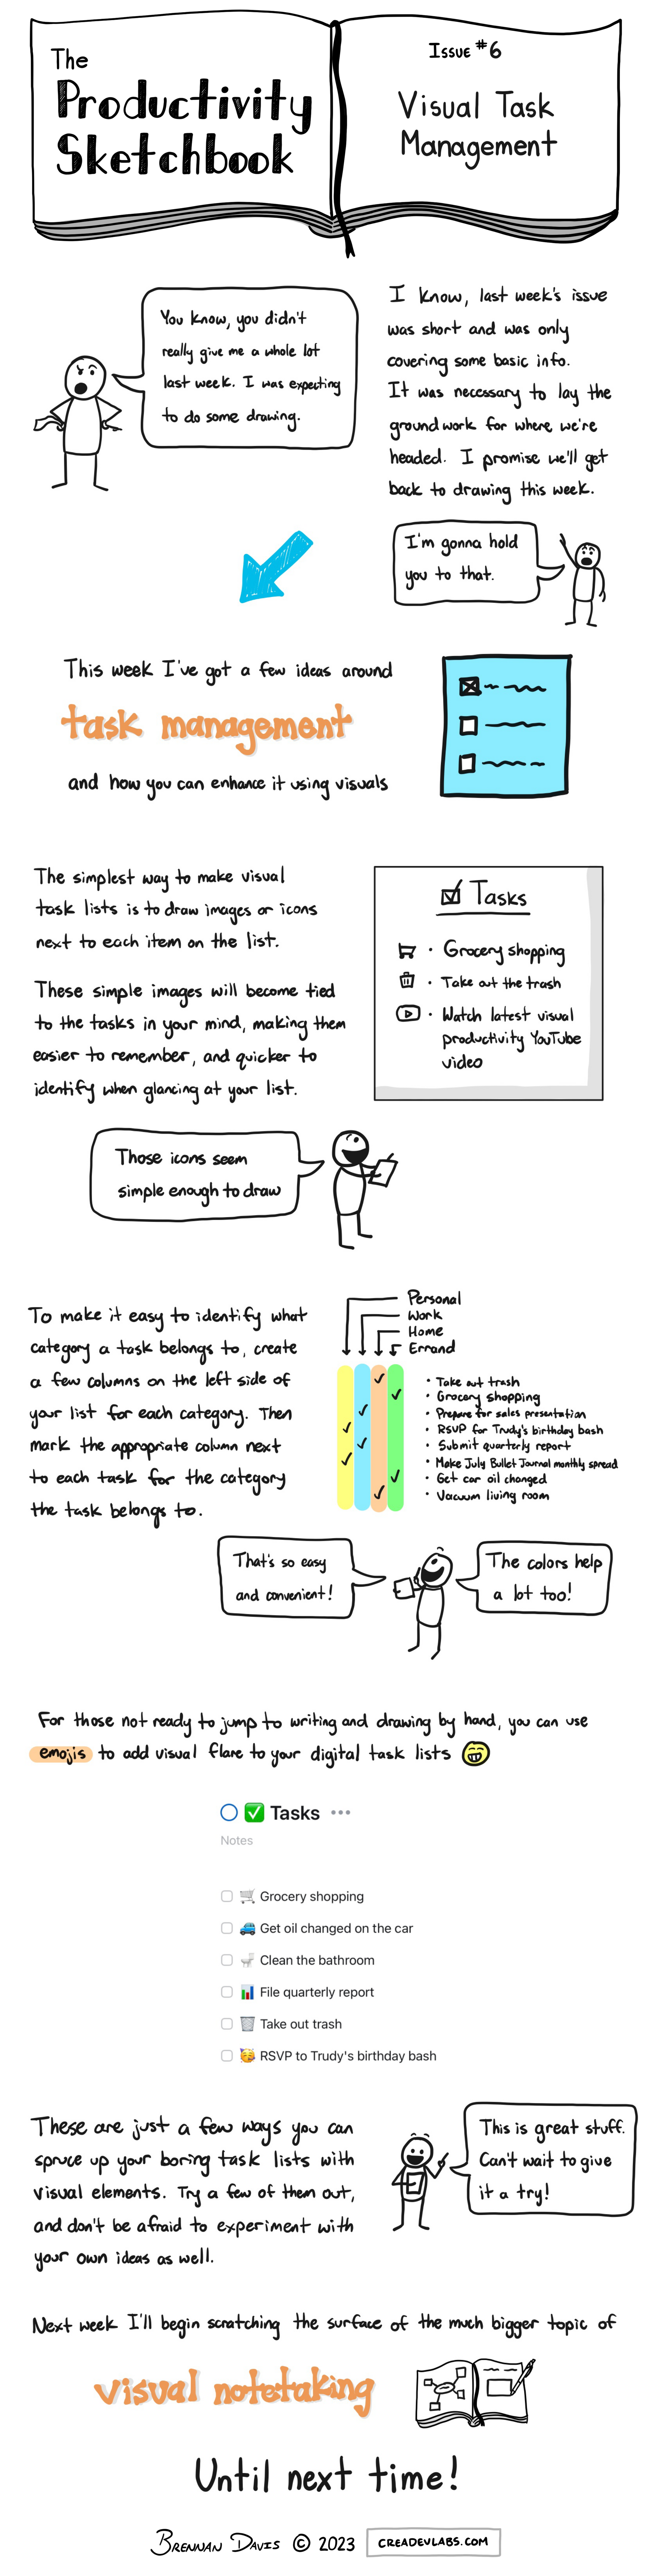 The
Productivity
Sketchbook
Issue #6
Visual Task
Management
You know, you didn't
really give me a whole lot
last week. I was expecting
to do some drawing.
I know, last week's issue
was short and was only
covering some basic info.
It was necessary to lay the
groundwork for where we're
headed. I promise we'll get
back to drawing this week.
I'm gonna hold
you to that.
This week I've got a few ideas around
task management
and how you can enhance it using visuals
The simplest way to make visual
task lists is to draw images or icons
next to each item on the list.
These simple images will become tied
to the tasks in your mind, making them
easier to remember, and quicker to
identify when glancing at your list.
Tasks
• Grocery shopping
• Take out the trash
• Watch latest visual
productivity YouTube
video
Those icons seem
simple enough to draw
To make it easy to identify what
category a task belongs to, create
a few columns on the left side of
your list for each category. Then
mark the appropriate column next
to each task for the category
the task belongs to.
Personal
Work
Home
Errand
• Take out trash
• Grocery shopping
• Prepare for sales presentation
• RSVP for Trudy's birthday bash
• Submit quarterly report
• Make July Bullet Journal monthly spread
• Get car oil changed
• Vacuum living room
That's so easy
and convenient!
The colors help
a lot too!
For those not ready to jump to writing and drawing by hand, you can use
emojis to add visual flare to your digital task lists
Tasks
Notes
Grocery shopping
Get oil changed on the car
Clean the bathroom
File quarterly report
Take out trash
RSVP to Trudy's birthday bash
These are just a few ways you can
spruce up your boring task lists with
visual elements. Try a few of them out,
and don't be afraid to experiment with
your own ideas as well.
This is great stuff.
Can't wait to give
it a try!
Next week I'll begin scratching the surface of the much bigger topic of
visual notetaking
Until next time!
Brennan Davis © 2023
CREADEVLABS.COM